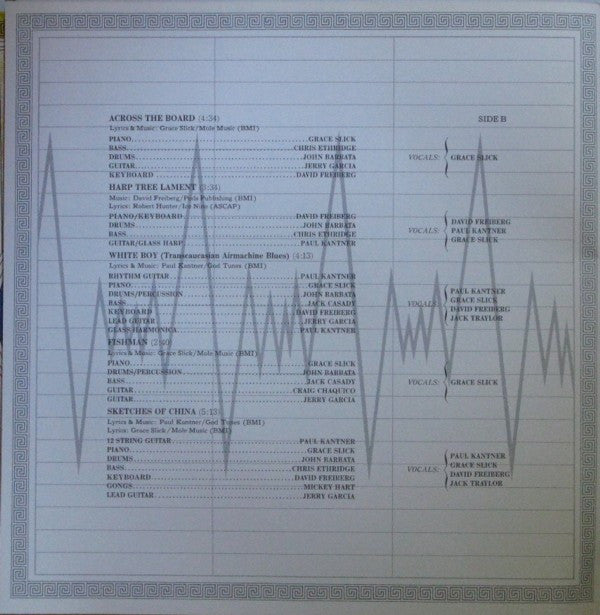 ACROSS THE BOARD (4:34) SIDE B
Lyrics & Music: Grace Slick/Mole Music (BMI)
PIANO..........GRACE SLICK
BASS..........CHRIS ETHRIDGE
DRUMS..........JOHN BARBATA
GUITAR..........JERRY GARCIA
KEYBOARD..........DAVID FREIBERG
VOCALS: { GRACE SLICK
HARP TREE LAMENT (3:34)
Music: David Freiberg/Pods Publishing (BMI)
Lyrics: Robert Hunter/Ice Nine (ASCAP)
PIANO/KEYBOARD..........DAVID FREIBERG
DRUMS..........JOHN BARBATA
BASS..........CHRIS ETHRIDGE
GUITAR/GLASS HARP..........PAUL KANTNER
VOCALS: { DAVID FREIBERG
PAUL KANTNER
GRACE SLICK
WHITE BOY (Transcaucasian Airmachine Blues) (4:13)
Lyrics & Music: Paul Kantner/God Tunes (BMI)
RHYTHM GUITAR..........PAUL KANTNER
PIANO..........GRACE SLICK
DRUMS/PERCUSSION..........JOHN BARBATA
BASS..........JACK CASADY
KEYBOARD..........DAVID FREIBERG
LEAD GUITAR..........JERRY GARCIA
GLASS HARMONICA..........PAUL KANTNER
VOCALS: { PAUL KANTNER
GRACE SLICK
DAVID FREIBERG
JACK TRAYLOR
FISHMAN (2:40)
Lyrics & Music: Grace Slick/Mole Music (BMI)
PIANO..........GRACE SLICK
DRUMS/PERCUSSION..........JOHN BARBATA
BASS..........JACK CASADY
GUITAR..........CRAIG CHAQUICO
GUITAR..........JERRY GARCIA
VOCALS: { GRACE SLICK
SKETCHES OF CHINA (5:13)
Lyrics & Music: Paul Kantner/God Tunes (BMI)
Lyrics: Grace Slick/Mole Music (BMI)
12 STRING GUITAR..........PAUL KANTNER
PIANO..........GRACE SLICK
DRUMS..........JOHN BARBATA
BASS..........CHRIS ETHRIDGE
KEYBOARD..........DAVID FREIBERG
GONGS..........MICKEY HART
LEAD GUITAR..........JERRY GARCIA
VOCALS: { PAUL KANTNER
GRACE SLICK
DAVID FREIBERG
JACK TRAYLOR